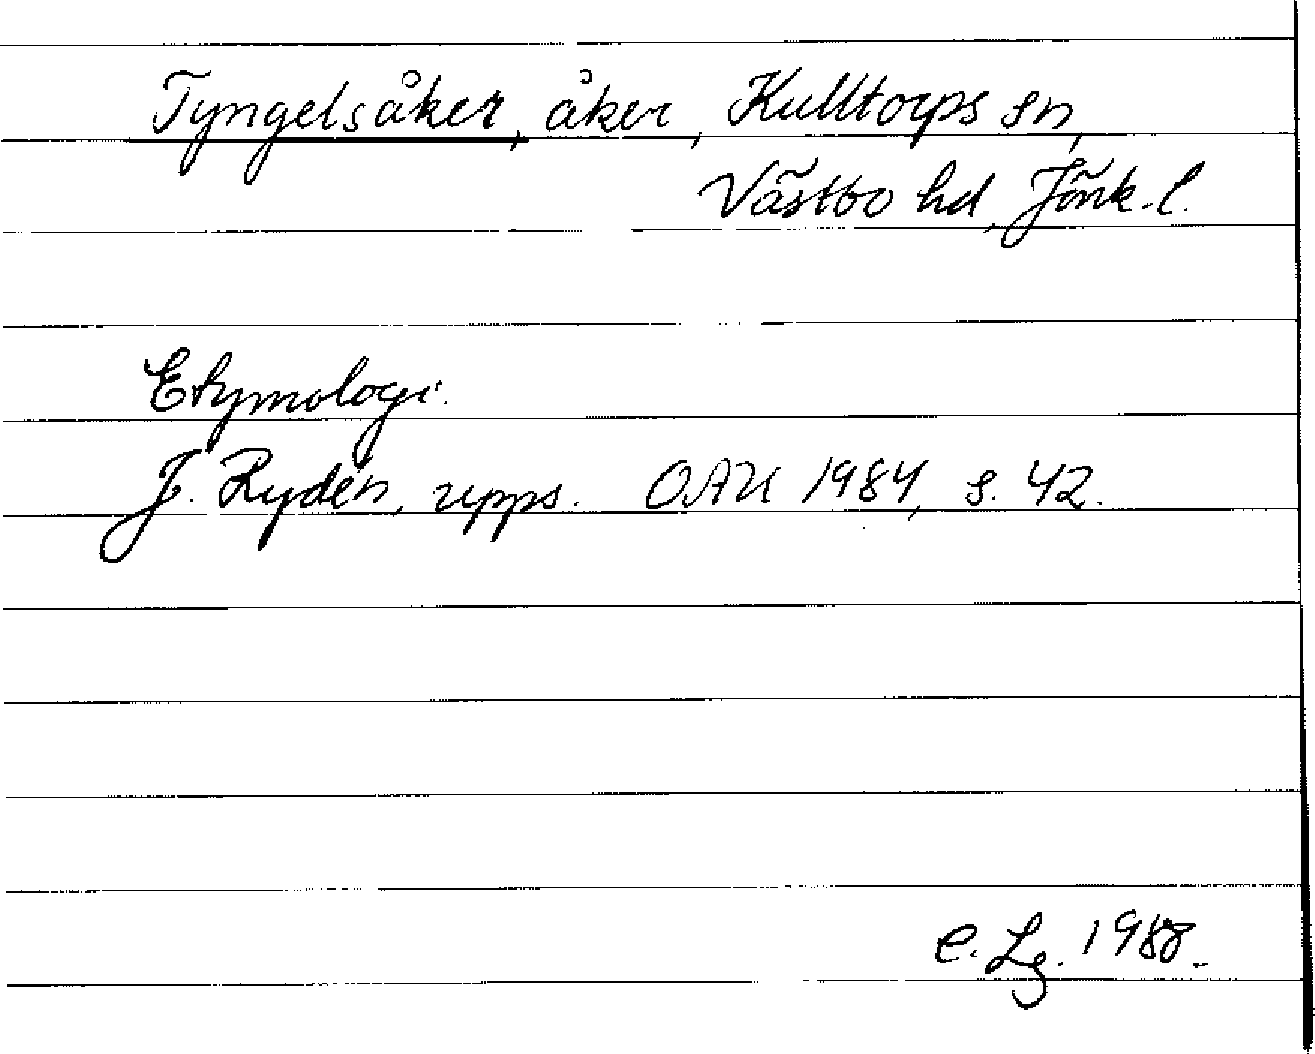 Tyngelsåker, åker, Kulltorps sn,
Västbo hd, Jönk. l.
Etymologi.
J. Rydén, upps. OAU 1984, s. 42.
C. Lg. 1988.